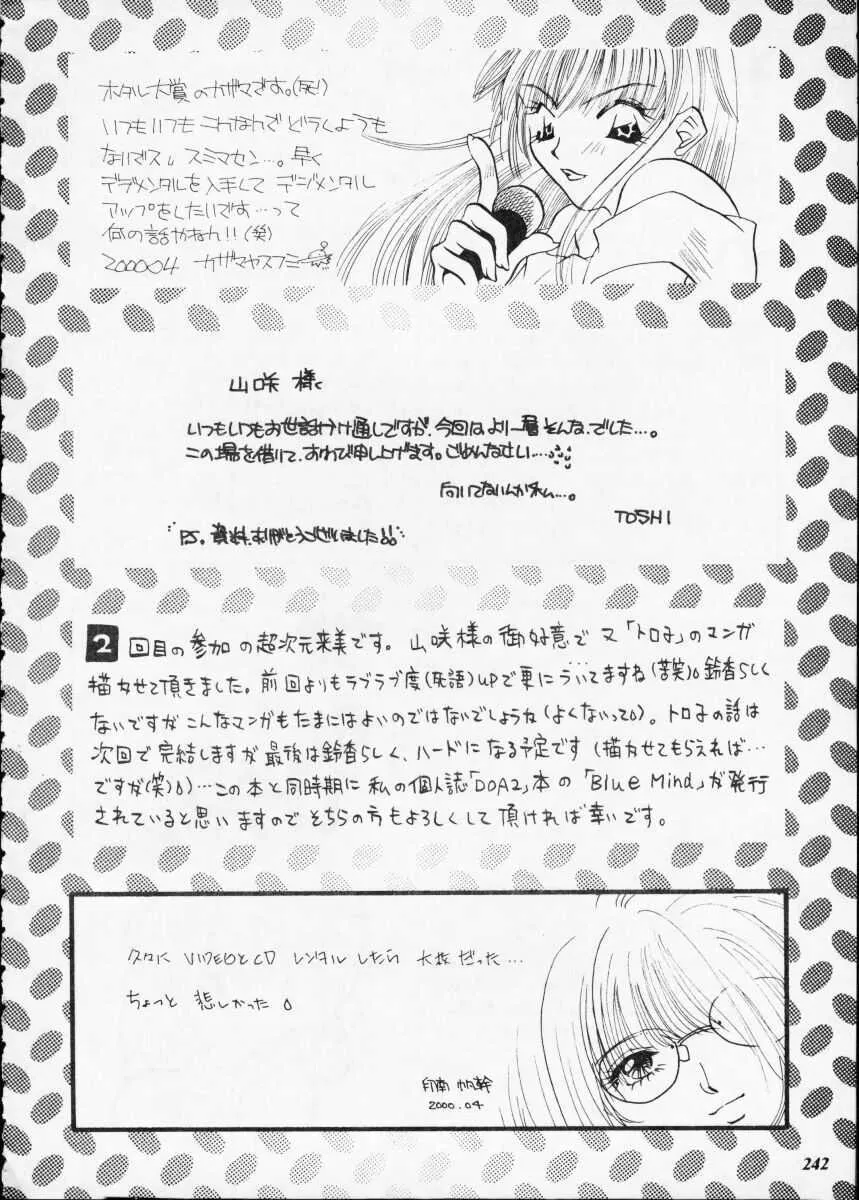 ホタル大賞のカザマです。(死!)
いつもいつもこんなんで どうしようも
ないデス。スミマセン…。早く
デヂメンタルを入手して デジメンタル
アップをしたいです…って
何の話やねん!!(笑)
200004 カザマヤスフミ
山咲 様へ
いつもいつもお世話かけ通しですが、今回はより一層そんな、でした…。
この場を借りて、おわび申し上げます。ごめんなさい…
向いてないんかねぇ…。
TOSHI
PS. 資料、ありがとうございました!!
2回目の参加の超次元来美です。山咲様の御好意で又「トロ子」のマンガ
描かせて頂きました。前回よりもラブラブ度(死語)UPで更にういてますね(苦笑)。鈴香らしく
ないですが こんなマンガもたまにはよいのではないでしょうね(よくないって)。トロ子の話は
次回で完結しますが 最後は鈴香らしく、ハードになる予定です(描かせてもらえれば…
ですが(笑))…この本と同時期に 私の個人誌「DOA2」本の「Blue Mind」が発行
されていると思いますので そちらの方もよろしくして頂ければ幸いです。
久々に VIDEOとCD レンタル したら 大抵だった…
ちょっと 悲しかった
印南 帆幹
2000.04
242